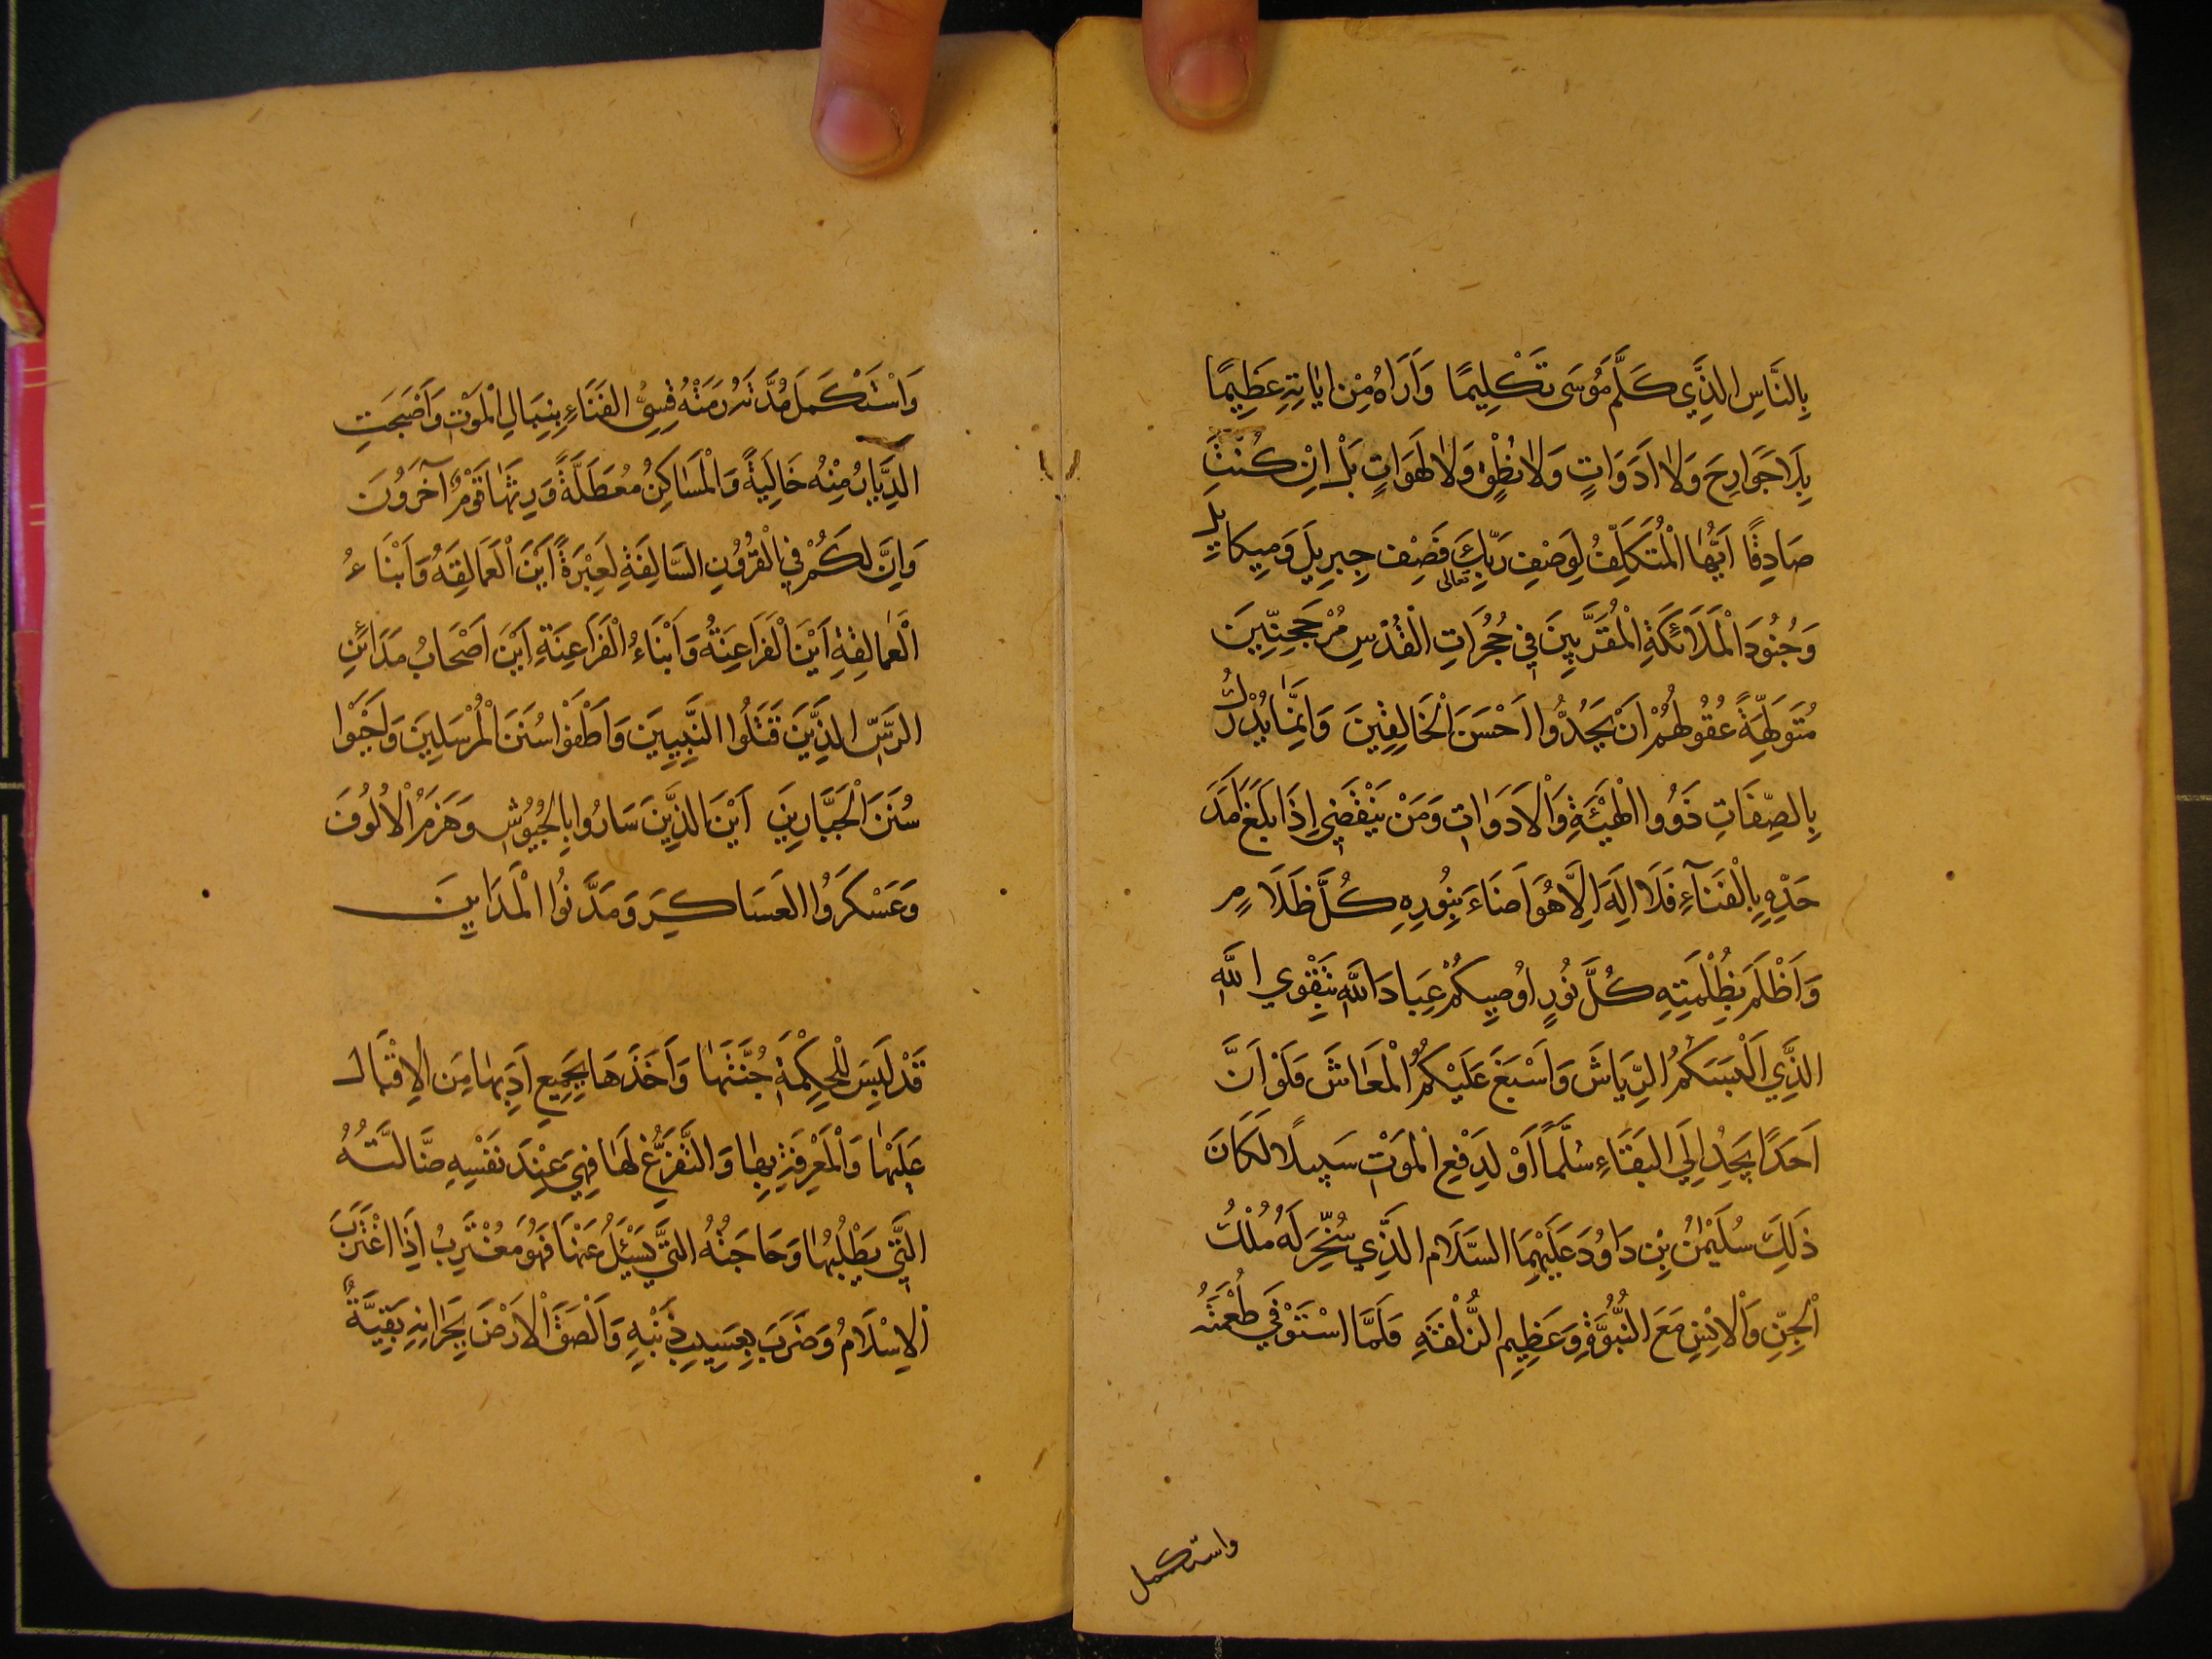 بِالنَّاسِ الَّذِي كَلَّمَ مُوسَى تَكْلِيمًا وَاَرَاهُ مِنْ اٰيَاتِهِ عَظِيمًا
بِلَا جَوَارِحَ وَلَا اَدَوَاتٍ وَلَا نُطْقٍ وَلَا لَهَوَاتٍ بَلْ اِنْ كُنْتَ
صَادِقًا اَيُّهَا الْمُتَكَلِّفُ لِوَصْفِ رَبِّكَ تعالى فَصِفْ جِبرِيلَ وَمِيكَائِلَ
وَجُنُودَ الْمَلَائِكَةِ الْمُقَرَّبِينَ فِي حُجُرَاتِ الْقُدُسِ مُرْجَحِنِّينَ
مُتَوَلِّهَةً عُقُولُهُمْ اَنْ يَحُدُّوا اَحْسَنَ الْخَالِقِينَ وَاِنَّمَا يُدْرَكُ
بِالصِّفَاتِ ذَوُوا الْهَيْئَةِ وَالْاَدَوَاتِ وَمَنْ يَنْقَضِي اِذَا بَلَغَ اَمَدَ
حَدِّهِ بِالْفَنَآءِ فَلَا اِلَهَ اِلَّا هُوَ اَضَاءَ بِنُورِهِ كُلَّ ظَلَامٍ
وَاَظْلَمَ بِظُلْمَتِهِ كُلَّ نُورٍ اُوصِيكُمْ عِبَادَ اللّٰهِ بِتَقْوَي اللّٰهِ
الَّذِي اَلْبَسَكُمُ الرِّيَاشَ وَاَسْبَغَ عَلَيْكُمُ الْمَعَاشَ فَلَوْ اَنَّ
اَحَدًا يَجِدُ اِلَي الْبَقَاءِ سُلَّمًا اَوْ لِدَفْعِ الْمَوْتِ سَبِيلًا لَكَانَ
ذَلِكَ سُلَيْمٰنُ بْنِ دَاوُدَ عَلَيْهِمَا السَّلَام الَّذِي سُخِّرَ لَهُ مُلْكُ
الْجِنِّ وَالْاِنْسِ مَعَ النُّبُوَّةِ وَعَظِيمِ الزُّلْفَةِ فَلَمَّا اسْتَوْفَي طُعْمَتَهُ
واستكمل
وَاسْتَكْمَلَ مُدَّتَهُ رَمَتْهُ قِسِيُّ الفَنَاءِ بِنِبَالِ الْمَوْتِ وَاَصْبَحَتِ
الدِّيَارُ مِنْهُ خَالِيَةً وَالْمَسَاكِنُ مُعَطَّلَةً وَرِثَهَا قَوْمٌ آخَرُونَ
وَاِنَّ لَكُمْ فِي الْقُرُونِ السَّالِفَةِ لَعِبْرَةً اَيْنَ الْعَمَالِقَةُ وَاَبْنَاءُ
الْعَمَالِقَةِ اَيْنَ الْفَرَاعِنَةُ وَاَبْنَاءُ الْفَرَاعِنَةِ اَيْنَ اَصْحَابُ مَدَائِنِ
الرَّسِّ الَّذِينَ قَتَلُوا النَّبِيِّينَ وَاَطْفَوْا سُنَنَ الْمُرْسَلِينَ وَاَحْيَوْا
سُنَنَ الْجَبَّارِينَ اَيْنَ الَّذِينَ سَارُوا بِالْجُيُوشِ وَهَزَمُ الْاُلُوفَ
وَعَسْكَرُوا العَسَاكِرَ وَمَدَّنُوا الْمَدَايِنَ
قَدْ لَبِسَ لِلْحِكْمَةِ جُنَّتَهَا وَاَخَذَهَا بِجَمِيعِ اَدَبِهَا مِنَ الْاِقْبَالِ
عَلَيْهَا وَالْمَعْرِفَةِ بِهَا وَالتَّفَرُّغِ لَهَا فَهِيَ عِنْدَ نَفْسِهِ ضَالَّتُهُ
الَّتِي يَطْلُبُهَا وَحَاجَتُهُ الَّتِي يَسْئَلُ عَنْهَا فَهُوَ مُغْتَرِبٌ اِذَا اغْتَرَبَ
الْاِسْلَامُ وَضَرَبَ بِعَسِيبِ ذَنَبِهِ وَاَلْصَقَ الْاَرْضَ بِجَرَانِهِ بَقِيَّةٌ